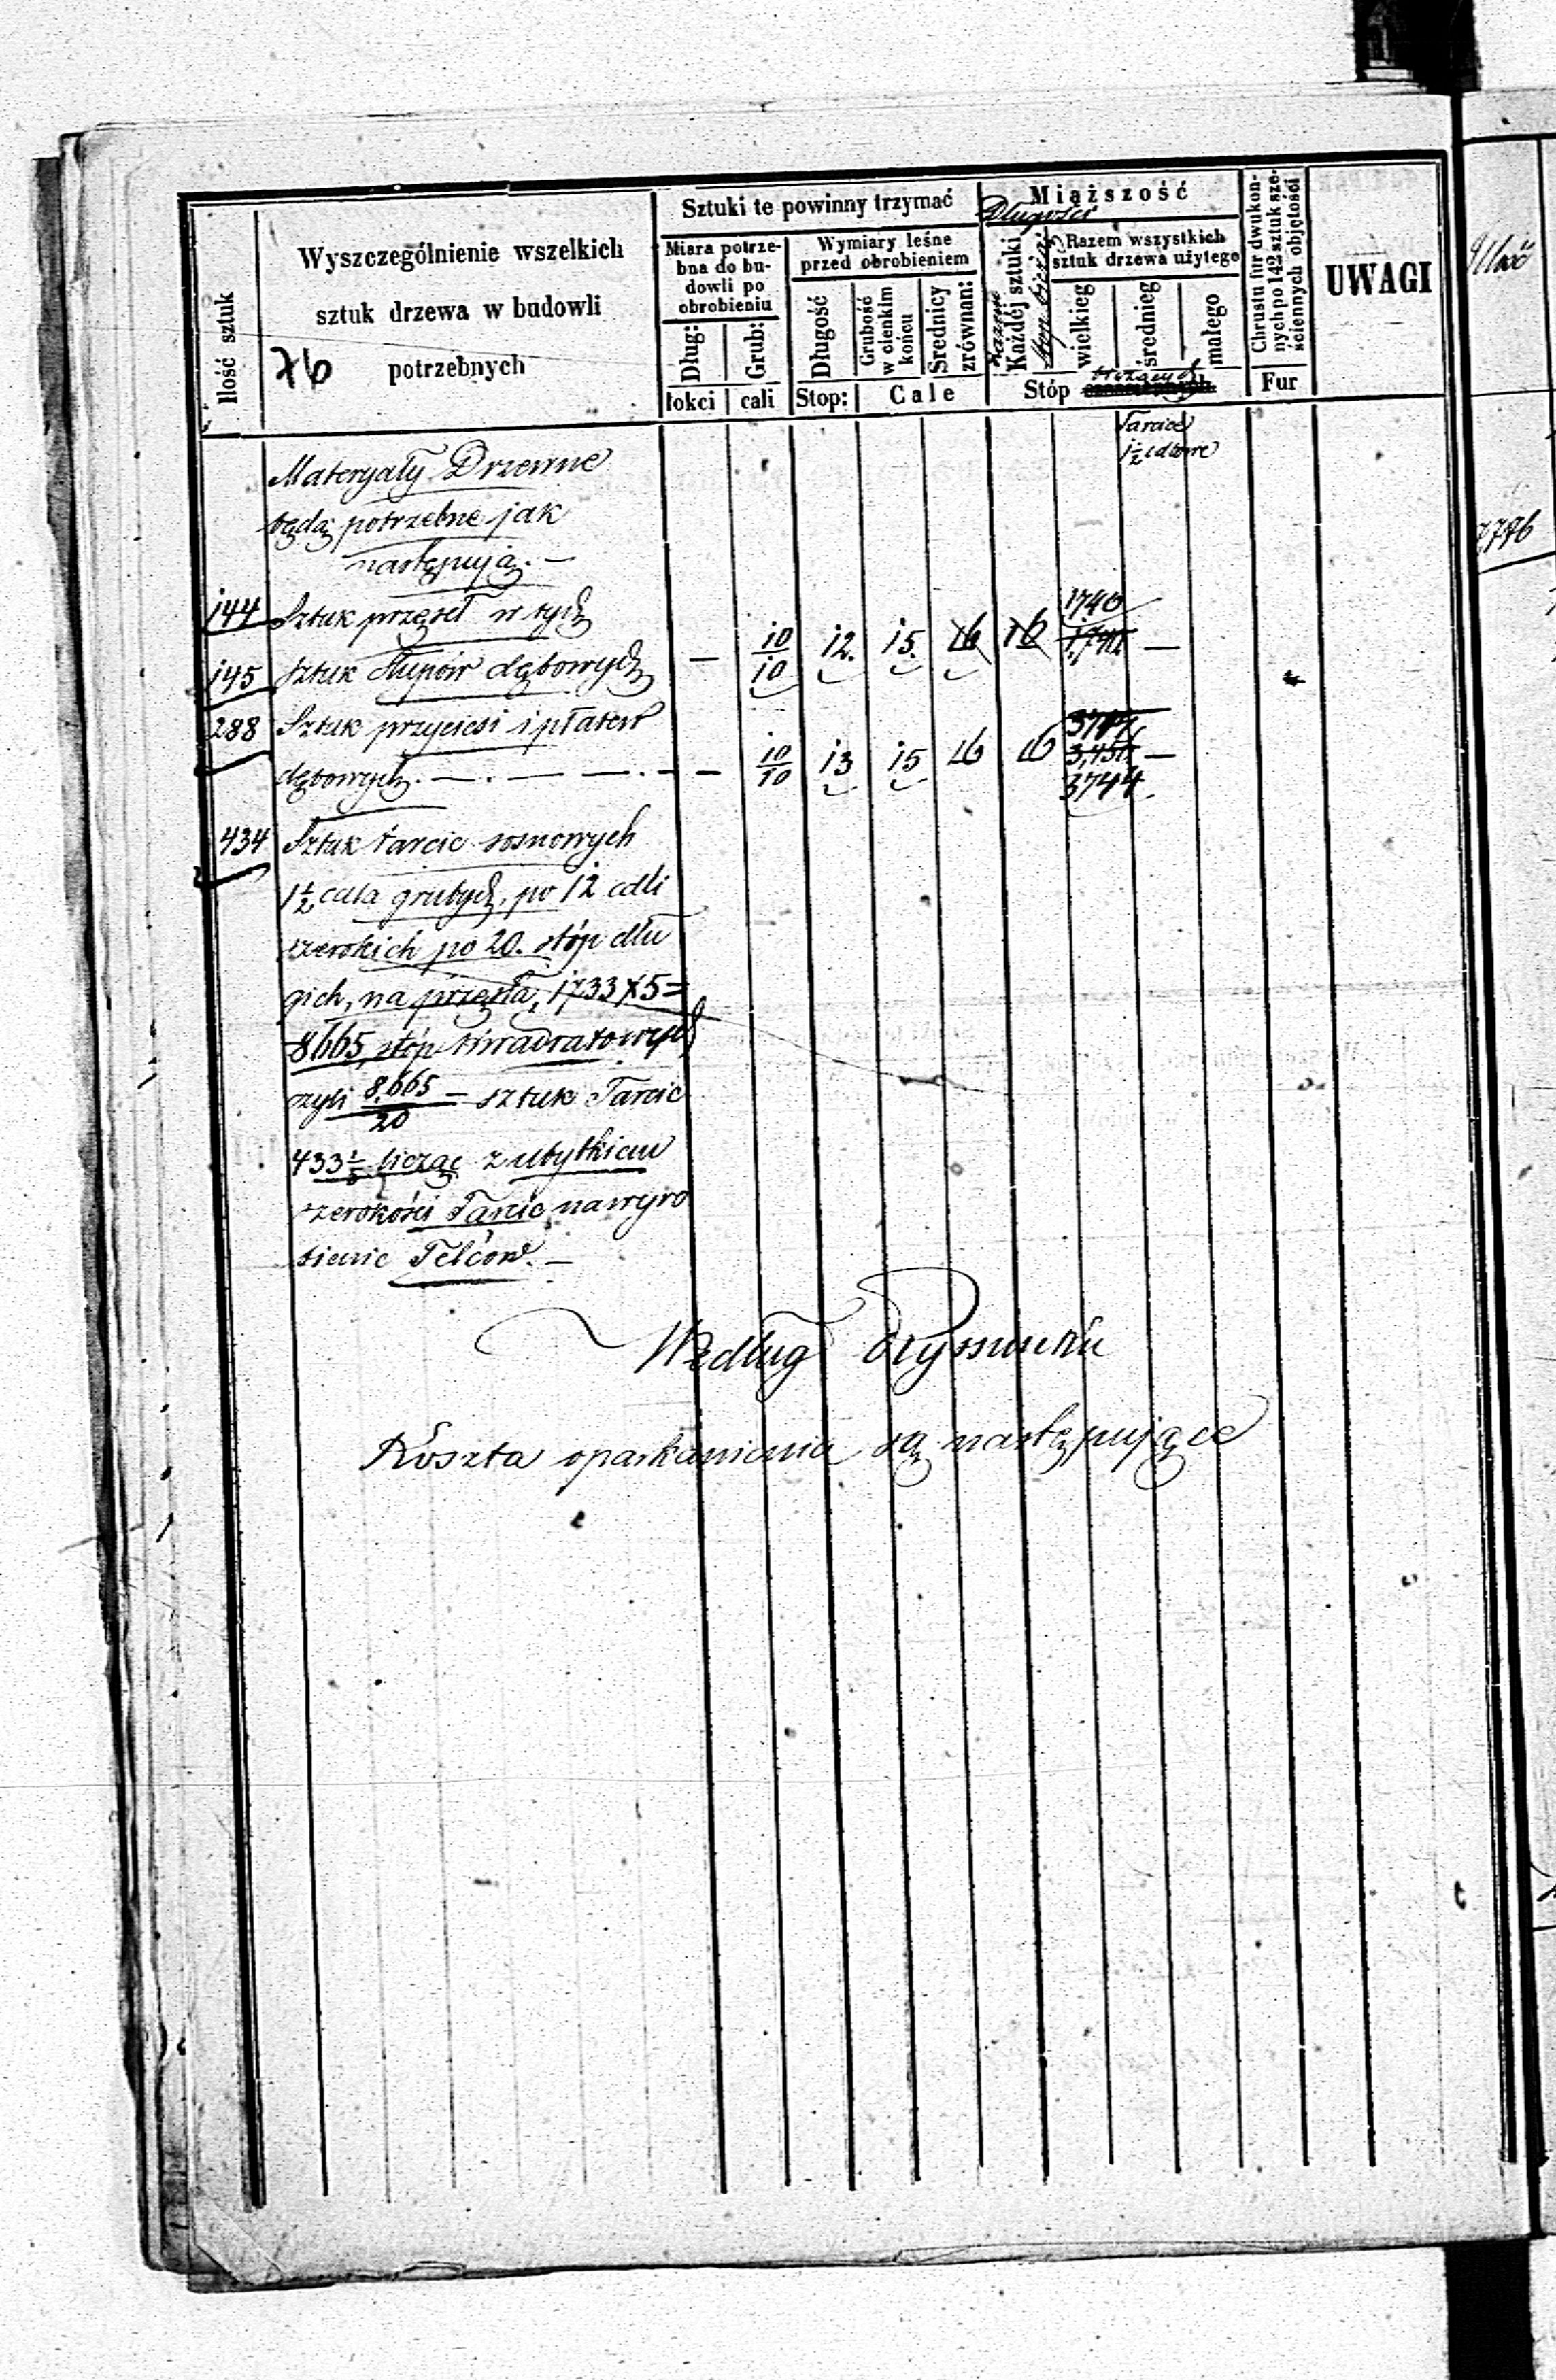 Ilość sztuk
Wyszczególnienie wszelkich
sztuk drzewa w budowli
potrzebnych
76
Sztuki te powinny trzymać
Miara potrze-
bna do bu-
dowli po
obrobieniu
Dług:
Grub:
łokci
cali
Wymiary leśne
przed obrobieniem
Długość
Grubość
w cienkim
końcu
Średnicy
zrównan:
Stop:
Cale
Miąższość
Długości
Każdej sztuki
Razem wszystkich
sztuk drzewa użytego
wielkieg
średnieg
małego
Stóp
Chrustu fur dwukon-
nych po 142 sztuk sze-
ściennych objętości
Fur
UWAGI
Tarcice
1½ calowe
Materyały Drzewne
będą potrzebne jak
następują. —
144 Sztuk przęseł w tych
1740
145 Sztuk słupów dębowych — 10/10 12. 15. 16 16 1,740 —
288 Sztuk przyciesi i płatew
dębowych. — . — — . — — 10/10 13 15 16 16 3,456 —
3744
434 Sztuk tarcic sosnowych
1½ cala grubych, po 12 cali
szerokich po 20. stóp dłu
gich, na przęsła, 1733 x 5 =
8665, stóp kwadratowych
czyli 8.665/20 = sztuk Tarcic
433 licząc z ubytkiem
szerokości Tarcic na wyro
bienie Felców. —
Według Rysunku
Koszta oparkanienia są następujące
7,776